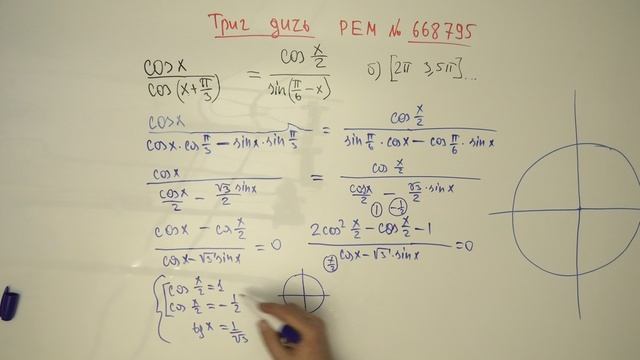 Триг дичь РЕМ № 668795
cosx / cos(x+π/3) = cos x/2 / sin(π/6 − x) б) [2π 3,5π]...
cosx / cosx·cos π/3 − sinx·sin π/3 = cos x/2 / sin π/6·cosx − cos π/6·sinx
cosx / cosx/2 − √3 sinx/2 = cos x/2 / cosx/2 − √3/2·sinx
① −1/2
cosx − cos x/2 / cosx−√3 sinx = 0 2cos² x/2 − cos x/2 − 1 / cosx−√3·sinx = 0
x/2
cos x/2 = 1
cos x/2 = −1/2
tgx = 1/√3